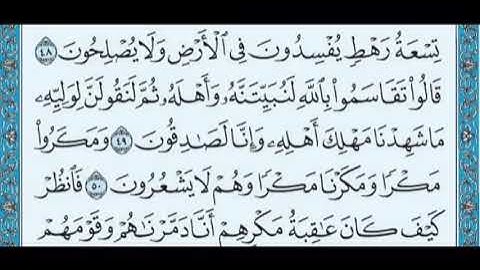 تِسْعَةُ رَهْطٍ يُفْسِدُونَ فِى ٱلْأَرْضِ وَلَا يُصْلِحُونَ ٤٨
قَالُوا۟ تَقَاسَمُوا۟ بِٱللَّهِ لَنُبَيِّتَنَّهُۥ وَأَهْلَهُۥ ثُمَّ لَنَقُولَنَّ لِوَلِيِّهِۦ
مَا شَهِدْنَا مَهْلِكَ أَهْلِهِۦ وَإِنَّا لَصَٰدِقُونَ ٤٩ وَمَكَرُوا۟
مَكْرًا وَمَكَرْنَا مَكْرًا وَهُمْ لَا يَشْعُرُونَ ٥٠ فَٱنظُرْ
كَيْفَ كَانَ عَٰقِبَةُ مَكْرِهِمْ أَنَّا دَمَّرْنَٰهُمْ وَقَوْمَهُمْ